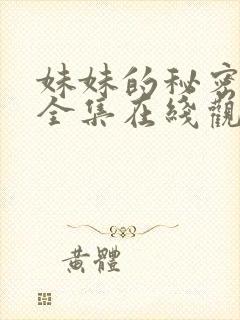 妹妹的秘密
全集在綫觀
黃體